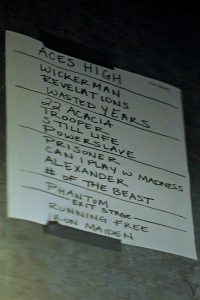 ACES HIGH
WICKERMAN
REVELATIONS
WASTED YEARS
22 ACACIA
TROOPER
STILL LIFE
POWERSLAVE
PRISONER
CAN I PLAY W MADNESS
ALEXANDER
# OF THE BEAST
PHANTOM
EXIT STAGE
RUNNING FREE
IRON MAIDEN